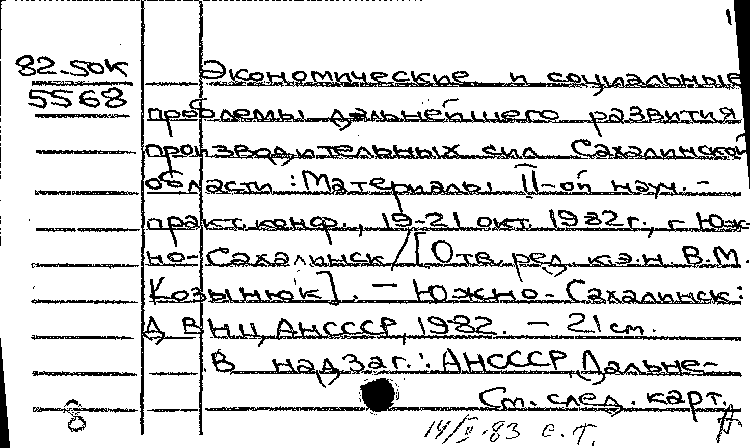 1
82-5ок Экономические и социальные
5568 проблемы дальнейшего развития
производительных сил Сахалинской
области : Материалы II-ой науч.-
практ. конф., 19-21 окт. 1982г., г. Юж-
но-Сахалинск / [Отв. ред. к.э.н. В.М.
Козынюк]. — Южно-Сахалинск :
ДВНЦ АНСССР, 1982. — 21 см.
В надзаг.: АНСССР, Дальне-
См. след. карт.
8
14/II-83 с.т.